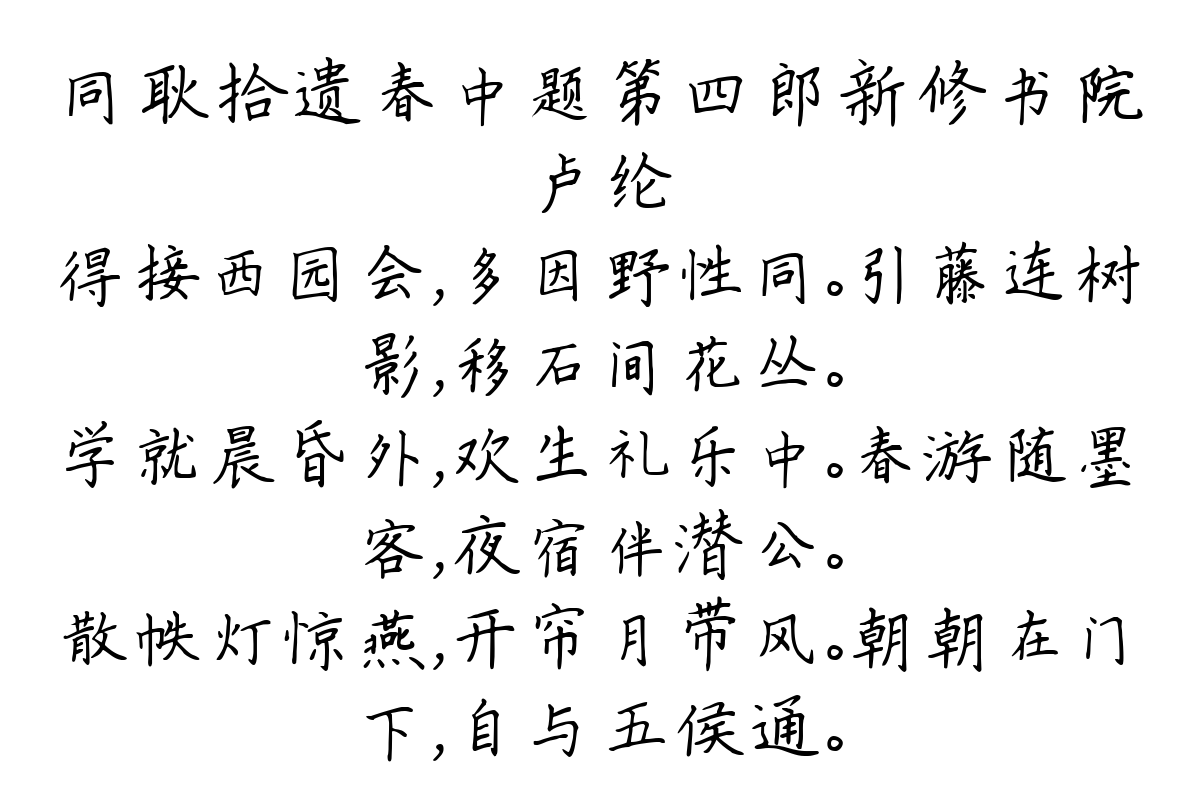 同耿拾遗春中题第四郎新修书院
卢纶
得接西园会,多因野性同。引藤连树
影,移石间花丛。
学就晨昏外,欢生礼乐中。春游随墨
客,夜宿伴潜公。
散帙灯惊燕,开帘月带风。朝朝在门
下,自与五侯通。